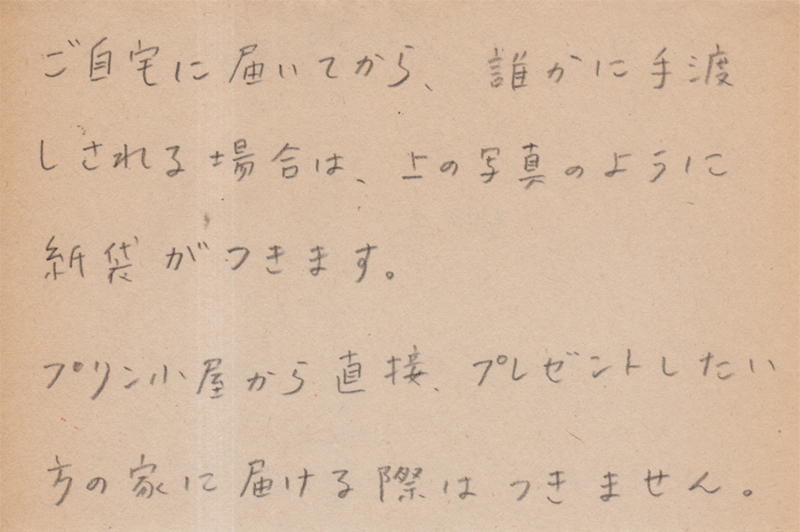 ご自宅に届いてから、誰かに手渡
しされる場合は、上の写真のように
紙袋がつきます。
プリン小屋から直接、プレゼントしたい
方の家に届ける際はつきません。